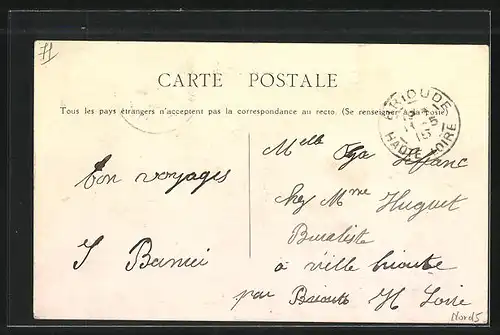 CARTE POSTALE
Tous les pays étrangers n'acceptent pas la correspondance au recto. (Se renseigner à la poste)
BRIOUDE
HAUTE-LOIRE
bon voyages
Melle
chez Mme Huguet
Buraliste
à ville
par H Loire
Nord5